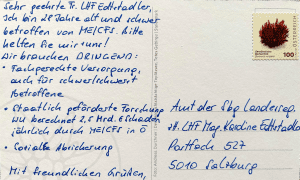 Sehr geehrte Fr. LHF Edtstadler,
ich bin 28 Jahre alt und schwer
betroffen von ME/CFS. Bitte
helfen Sie mir + uns!
Wir brauchen DRINGEND:
• Fachgerechte Versorgung,
auch für schwer/schwerst
Betroffene
• Staatlich geförderte Forschung
zu berechnet 2,5 Mrd. € Schaden
jährlich durch ME/CFS in Ö
• Soziale Absicherung
Mit freundlichen Grüßen,
ÖSTERREICH
100
Amt der Sbg Landesreg.
z.H. LHF Mag. Karoline Edtstadler
Postfach 527
5010 Salzburg